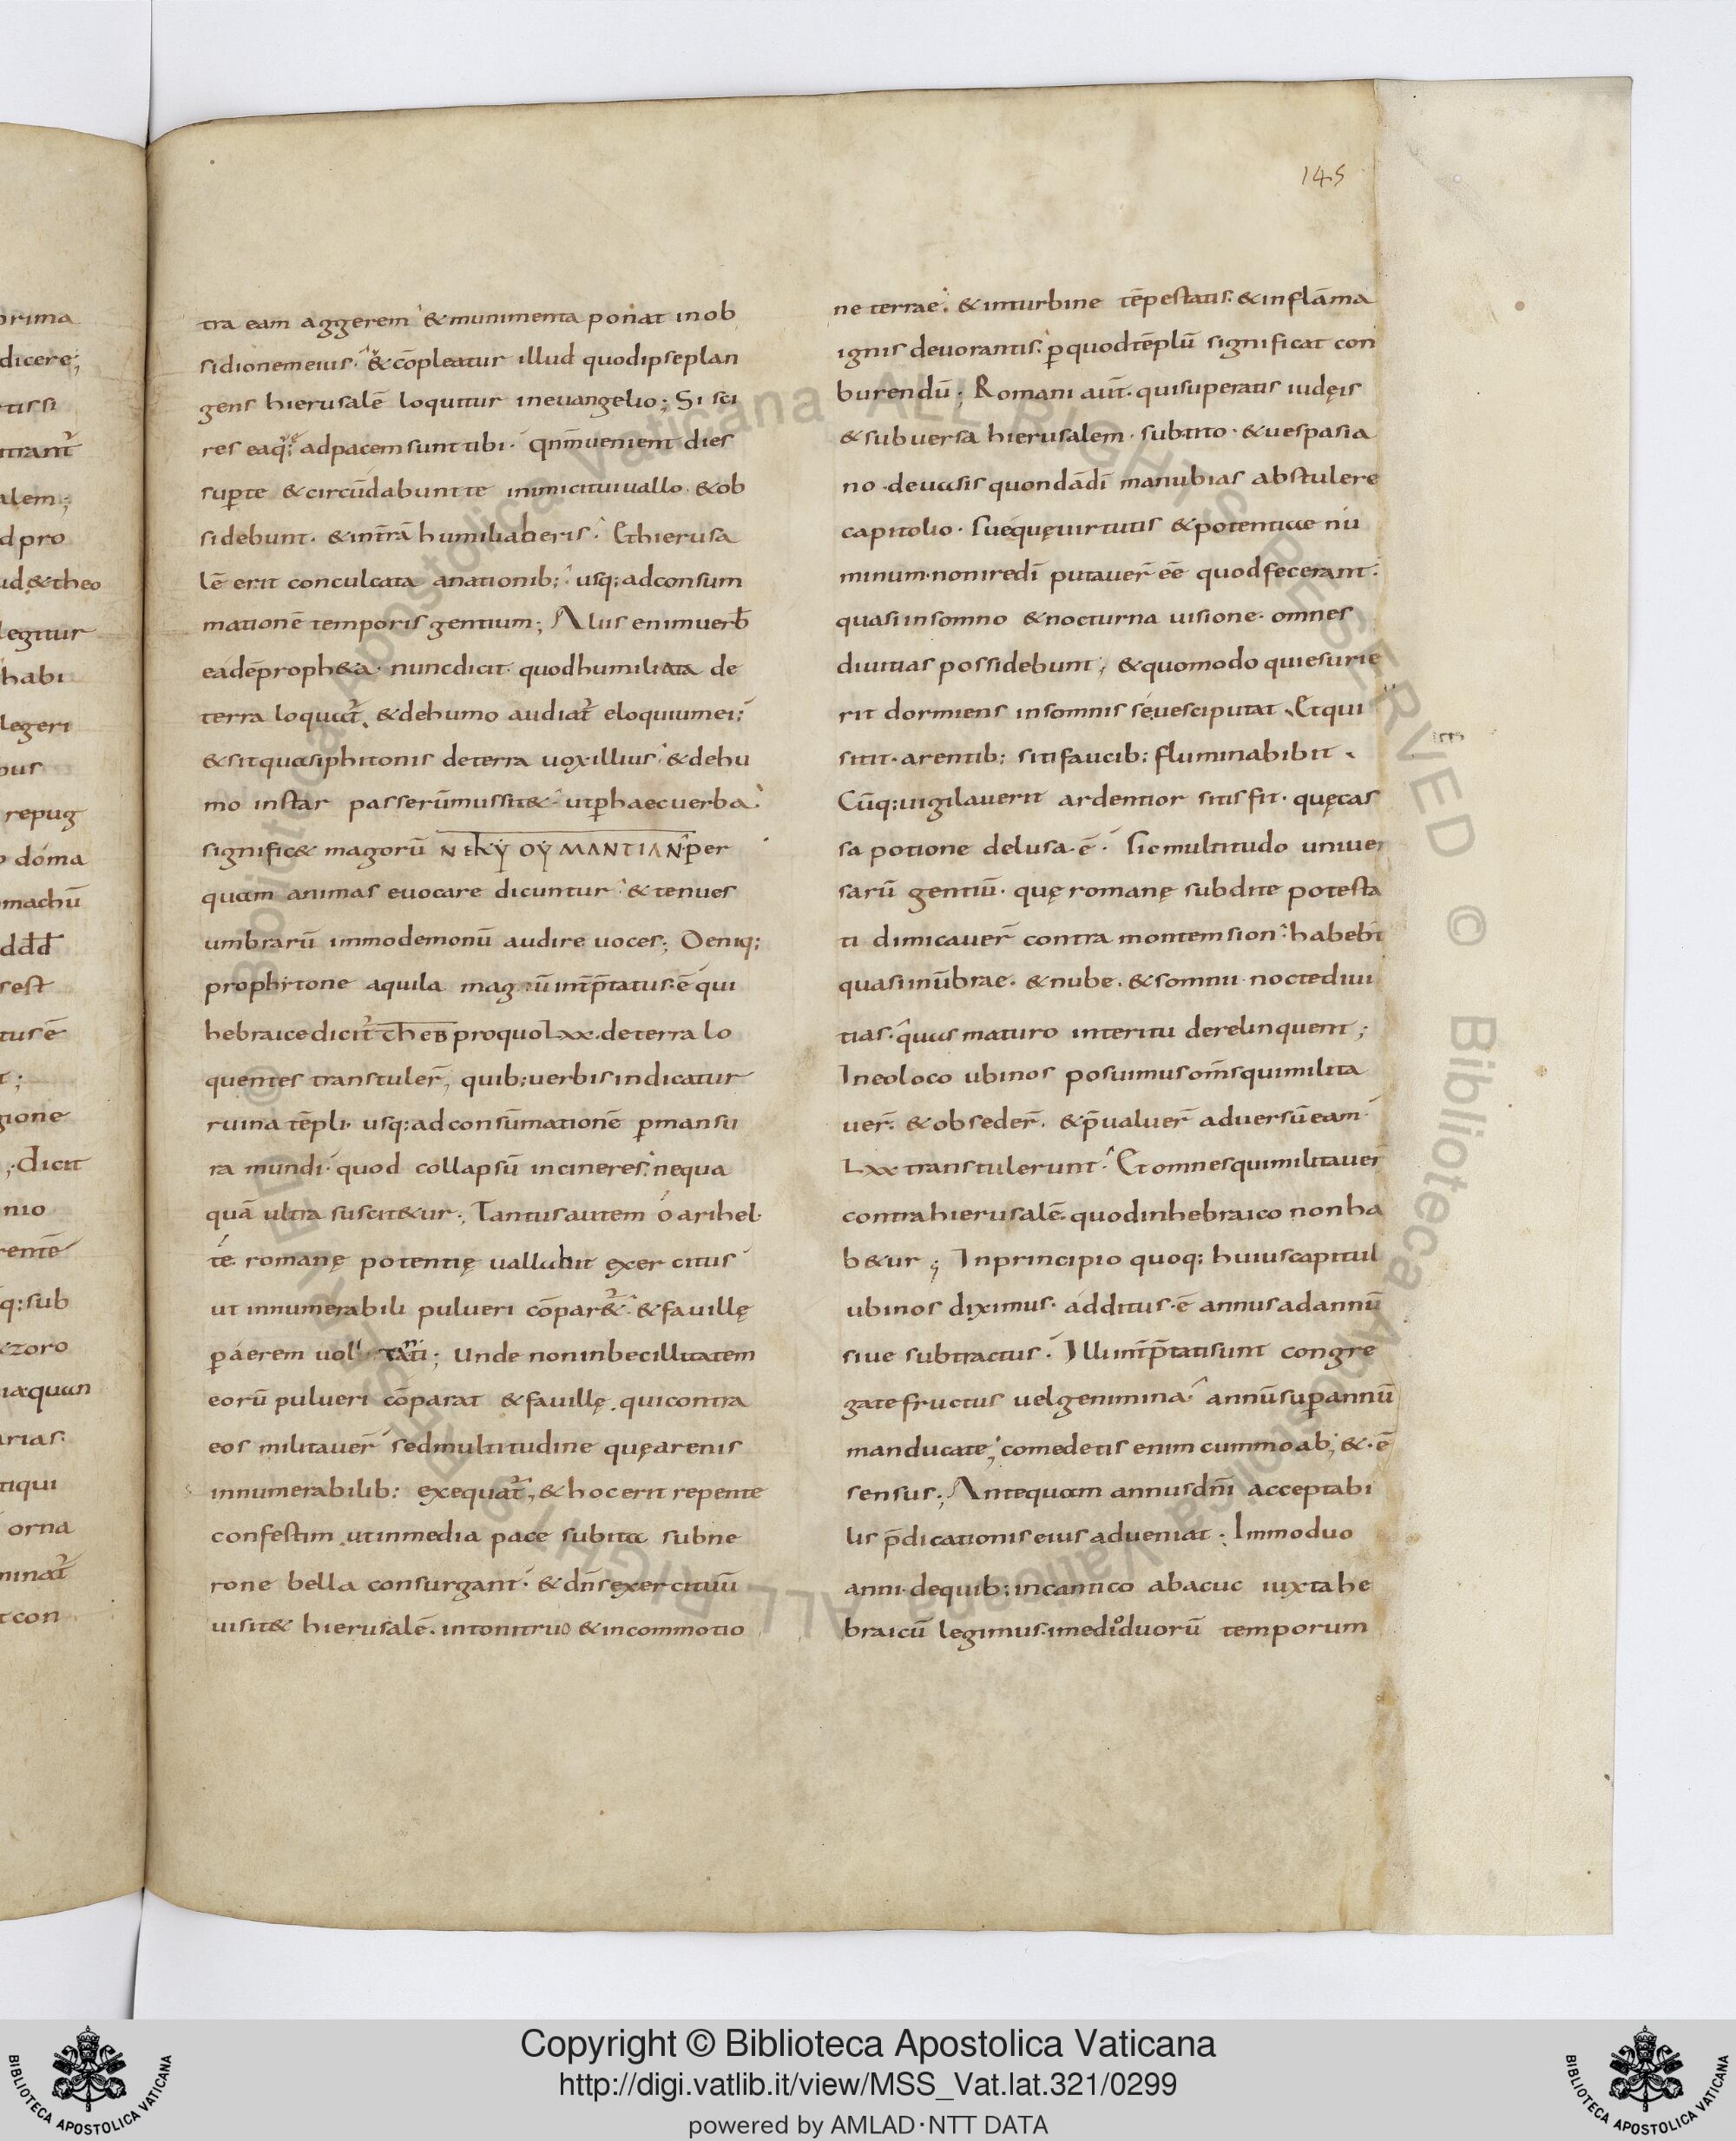 145
prima
dicere;
alem;
d pro
ud,&theo
legitur
habi
legeri
repug
doma
machū
rest
tus ē
gione
dicit
nio
q:sub
zoro
arias.
tiqui
orna
con
tra eam aggerem &munimenta ponat inob
sidionemeius. &cōpleatur illud quodipseplan
gens hierusalē loquitur ineuangelio; Si sci
res eaq; adpacem sunt tibi. qnm̄uenient dies
sup̱te &circūdabunt te inimicituiuallo &ob
sidebunt. &int̄rā humiliaberis. Ethierusa
lē erit conculcata anationib; usq; adconsum
mationē temporis gentium; Aliis enimuerb̄
eadēproph&a. nuncdicit. quodhumiliata de
terra loquat̄. &dehumo audiat̄ eloquiumei;
&sitquasiphitonis deterra uoxillius &dehu
mo instar passerūmussit& utp̱haecuerba.
signific& magorū ΝΕΚΥ ΟΥ ΜΑΝΤΙΑΝ per
quam animas euocare dicuntur & tenues
umbrarū immodemonū audire uoces; Deniq;
prophitone aquila magorū int̄p̄tatus.ē qui
hebraicedicit̄ theb proquolxx.deterra lo
quentes transtuler̄, quib;uerbisindicatur
ruina tēpli. usq;adconsūmationē p̱mansu
ra mundi. quod collapsū incineres. nequa
quā ultra suscit&ur; Tantusautem ó arihel.
té. romanę potentię uallabit exercitus
ut innumerabili pulueri cōpar&̄. &fauillę
p̱áerem uoli tanti; Unde noninbecillitatem
eorū pulueri cōparat &fauillę. quicontra
eos militauer̄ sedmultitudine quęarenis
innumerabilib: exequat̄, &hocerit repente
confestim utinmedia pace subita subne
rone bella consurgant. &dn̄sexercituū
uisit& hierusalē. intonitruo &incommotio
ne terrae. &inturbine tēpestatis. &inflāma
ignis deuorantis. p̱quodtēplū significat con
burendū; Romani aūt. quisuperatis iudęis
&subuersa hierusalem. subtito. &uespasia
no. deuasis quondādī manubias abstulere
capitolio. suęquęuirtutis &potentiae nu
minum.noniredī putauer̄ eē quodfecerant.
quasiinsomno &nocturna uisione. omnes
diuitias possidebunt, &quomodo quiesurie
rit dormiens insomnis séuesciputat. Etqui
sitit. arentib; sitifaucib; fluminabibit.
Cūq;uigilauerit ardentior sitis fit. quęcas
sa potione delusa.ē. sicmultitudo uniuer
sarū gentiū. quę romanę subdite potesta
ti dimicauer̄ contra montemsion. habebt̄
quasiinūbrae. &nube. &somnii noctediui
tias. quas maturo interitu derelinquent;
Ineoloco ubinos posuimusom̄squimilita
uer̄. &obseder̄. &p̄ualuer̄ aduersūeam
Lxx transtulerunt. Et omnesquimilitauer̄
contrahierusalē. quodinhebraico nonha
b&ur; Inprincipio quoq; huiuscapitul
ubinos diximus. additus.ē annusadannū
siue subtractus. Illiint̄p̄tatisunt congre
gatefructus uelgenimina. annūsup̱annū
manducate; comedetis enim cummoab; &.ē
sensus; Antequam annusdn̄i acceptabi
lis p̄dicationiseius adueniat. Immoduo
anni. dequib; incantico abacuc iuxtahe
braicū legimus. imediọduorū temporum
Copyright © Biblioteca Apostolica Vaticana
http://digi.vatlib.it/view/MSS_Vat.lat.321/0299
powered by AMLAD·NTT DATA
BIBLIOTECA APOSTOLICA VATICANA
BIBLIOTECA APOSTOLICA VATICANA